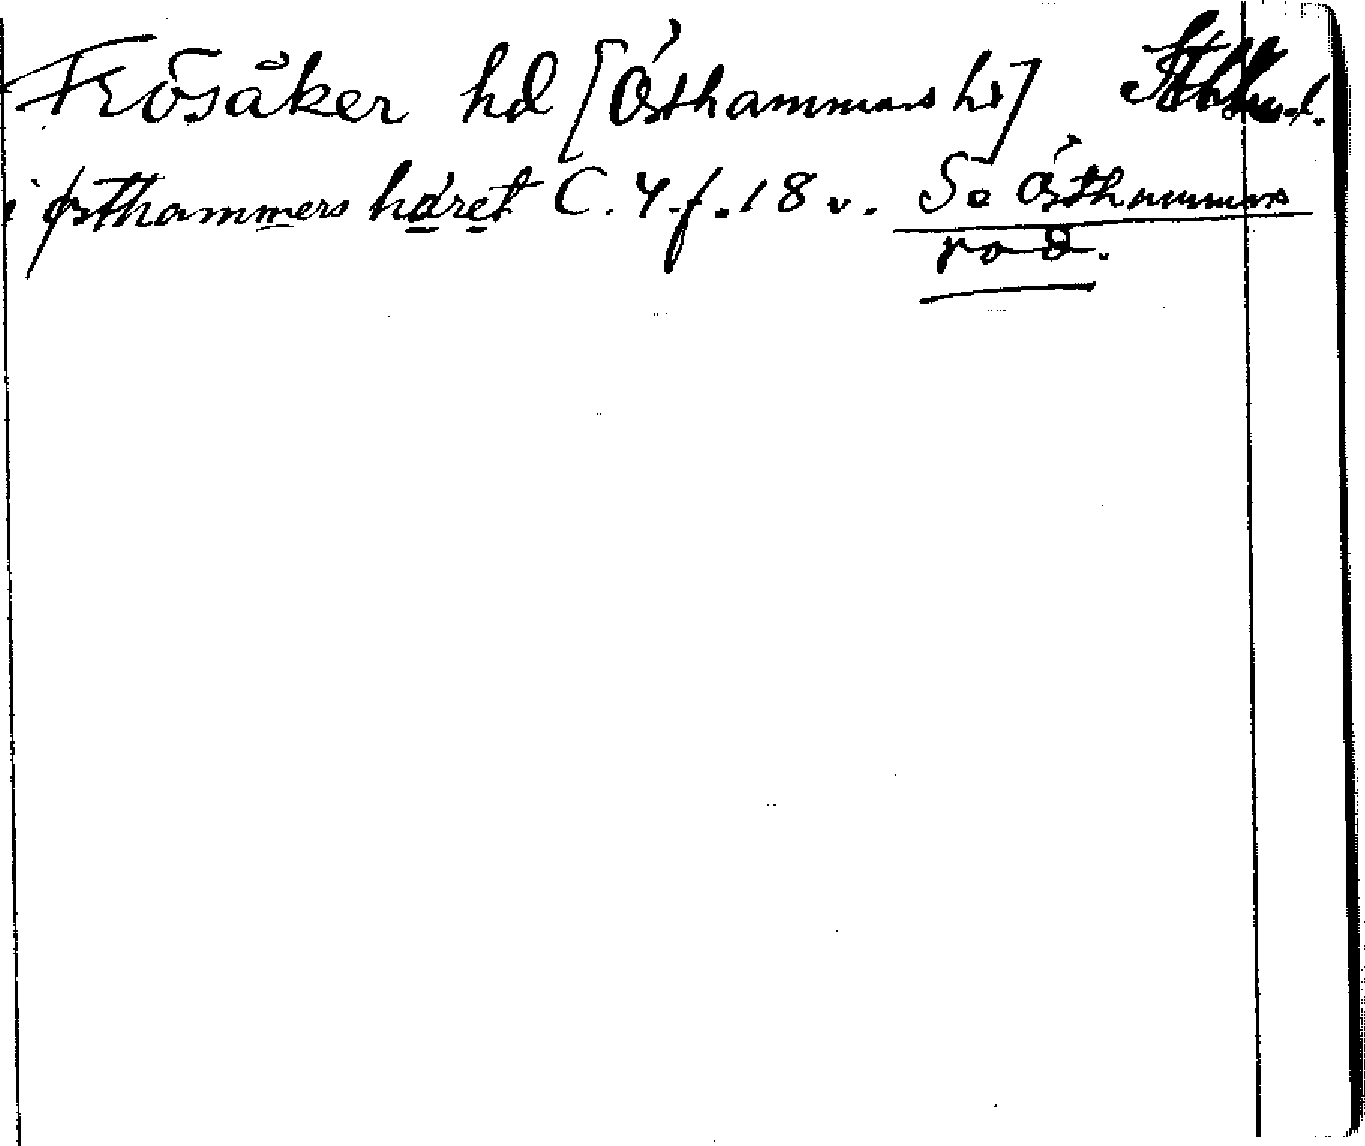 Frösåker hd [Östhammars hd]
i østhammers häret C. 4. f. 18 v. Se Östhammars
rod.